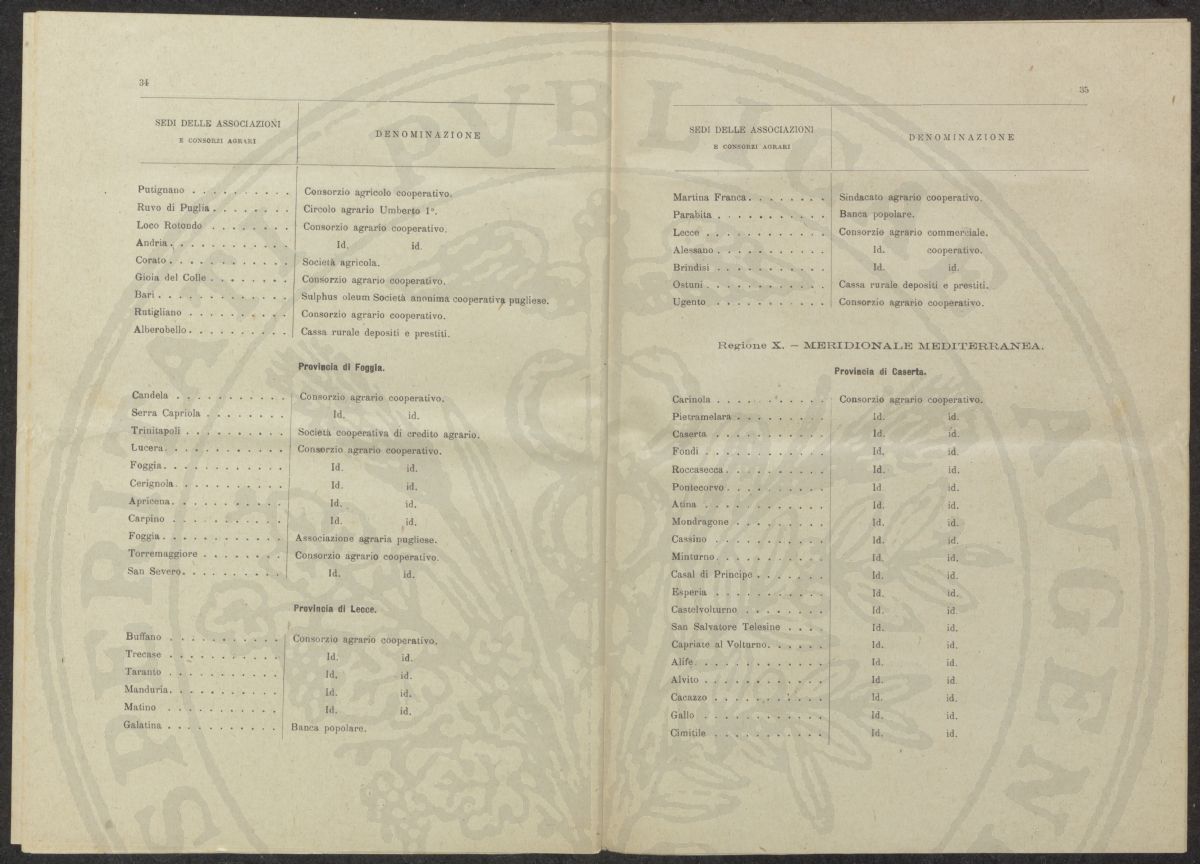 34
SEDI DELLE ASSOCIAZIONI
E CONSORZI AGRARI
DENOMINAZIONE
Putignano . . . . . . . . . . Consorzio agricolo cooperativo.
Ruvo di Puglia . . . . . . . Circolo agrario Umberto 1°.
Loco Rotondo . . . . . . . . Consorzio agrario cooperativo.
Andria . . . . . . . . . . . . Id. id.
Corato . . . . . . . . . . . . Società agricola.
Gioia del Colle . . . . . . . Consorzio agrario cooperativo.
Bari . . . . . . . . . . . . . Sulphus oleum Società anonima cooperativa pugliese.
Rutigliano . . . . . . . . . . Consorzio agrario cooperativo.
Alberobello . . . . . . . . . . Cassa rurale depositi e prestiti.
Provincia di Foggia.
Candela . . . . . . . . . . . Consorzio agrario cooperativo.
Serra Capriola . . . . . . . . Id. id.
Trinitapoli . . . . . . . . . . Società cooperativa di credito agrario.
Lucera . . . . . . . . . . . . Consorzio agrario cooperativo.
Foggia . . . . . . . . . . . . Id. id.
Cerignola . . . . . . . . . . . Id. id.
Apricena . . . . . . . . . . . Id. id.
Carpino . . . . . . . . . . . Id. id.
Foggia . . . . . . . . . . . . Associazione agraria pugliese.
Torremaggiore . . . . . . . . Consorzio agrario cooperativo.
San Severo . . . . . . . . . . Id. id.
Provincia di Lecce.
Buffano . . . . . . . . . . . Consorzio agrario cooperativo.
Trecase . . . . . . . . . . . Id. id.
Taranto . . . . . . . . . . . Id. id.
Manduria . . . . . . . . . . . Id. id.
Matino . . . . . . . . . . . Id. id.
Galatina . . . . . . . . . . . Banca popolare.
35
SEDI DELLE ASSOCIAZIONI
E CONSORZI AGRARI
DENOMINAZIONE
Martina Franca . . . . . . . . Sindacato agrario cooperativo.
Parabita . . . . . . . . . . . Banca popolare.
Lecce . . . . . . . . . . . . Consorzio agrario commerciale.
Alessano . . . . . . . . . . . Id. cooperativo.
Brindisi . . . . . . . . . . . Id. id.
Ostuni . . . . . . . . . . . . Cassa rurale depositi e prestiti.
Ugento . . . . . . . . . . . Consorzio agrario cooperativo.
Regione X. — MERIDIONALE MEDITERRANEA.
Provincia di Caserta.
Carinola . . . . . . . . . . . Consorzio agrario cooperativo.
Pietramelara . . . . . . . . . Id. id.
Caserta . . . . . . . . . . . Id. id.
Fondi . . . . . . . . . . . . Id. id.
Roccasecca . . . . . . . . . . Id. id.
Pontecorvo . . . . . . . . . . Id. id.
Atina . . . . . . . . . . . . Id. id.
Mondragone . . . . . . . . . Id. id.
Cassino . . . . . . . . . . . Id. id.
Minturno . . . . . . . . . . . Id. id.
Casal di Principe . . . . . . . Id. id.
Esperia . . . . . . . . . . . Id. id.
Castelvolturno . . . . . . . . Id. id.
San Salvatore Telesine . . . . Id. id.
Capriate al Volturno . . . . . . Id. id.
Alife . . . . . . . . . . . . . Id. id.
Alvito . . . . . . . . . . . . Id. id.
Cacazzo . . . . . . . . . . . Id. id.
Gallo . . . . . . . . . . . . Id. id.
Cimitile . . . . . . . . . . . Id. id.